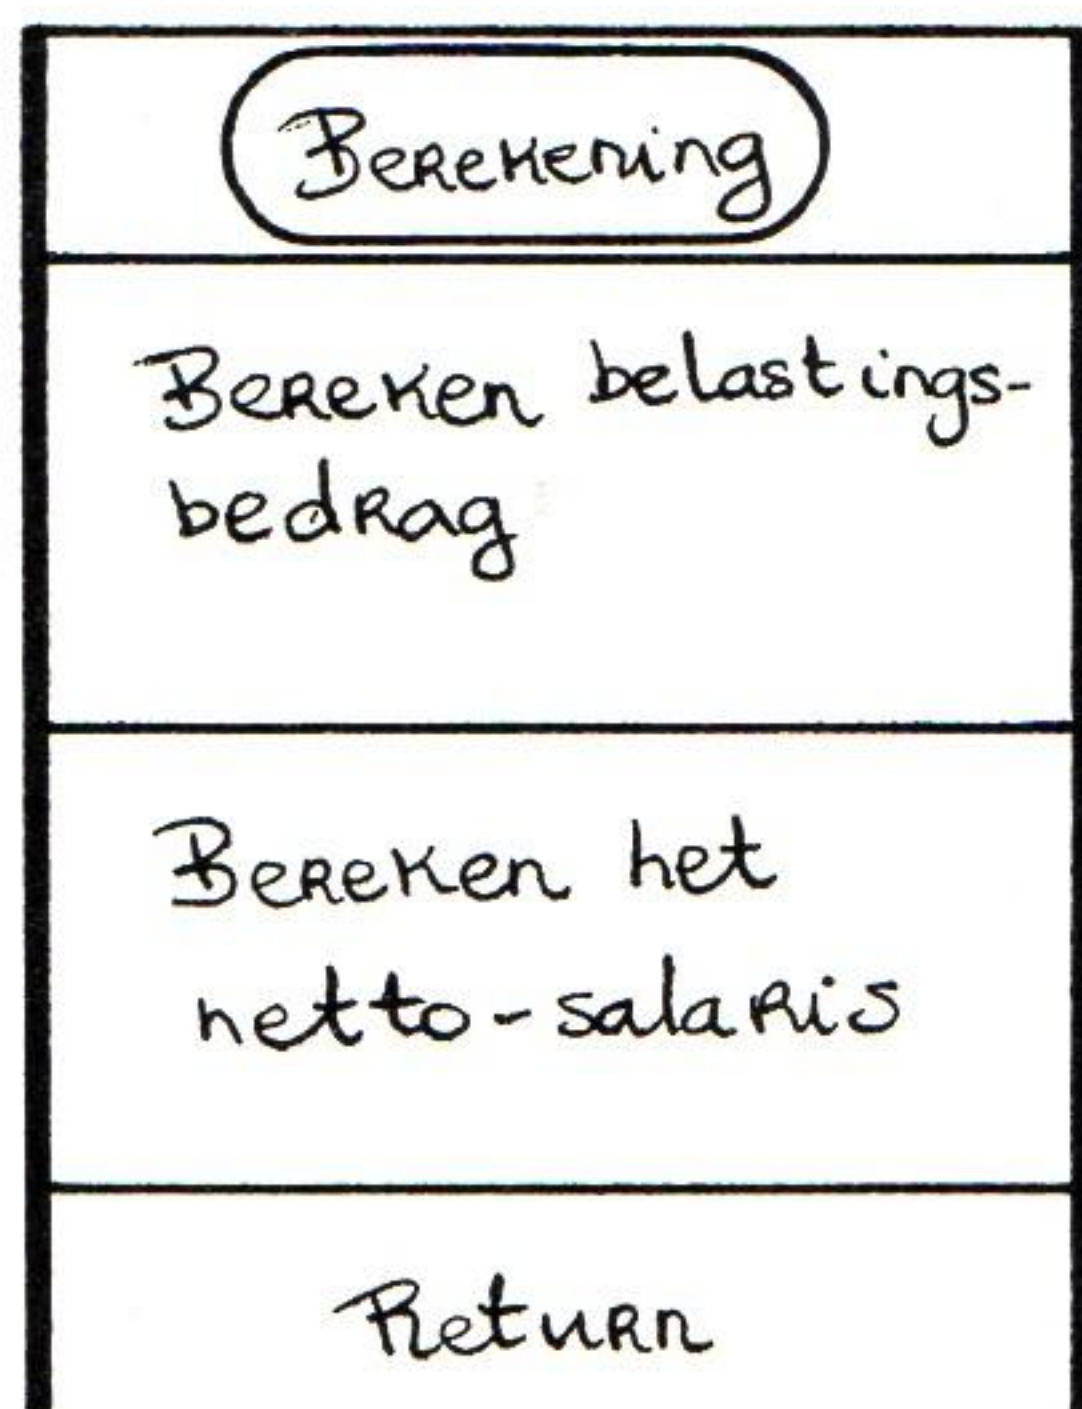 Berekening
Bereken belastings-
bedrag
Bereken het
netto-salaris
Return